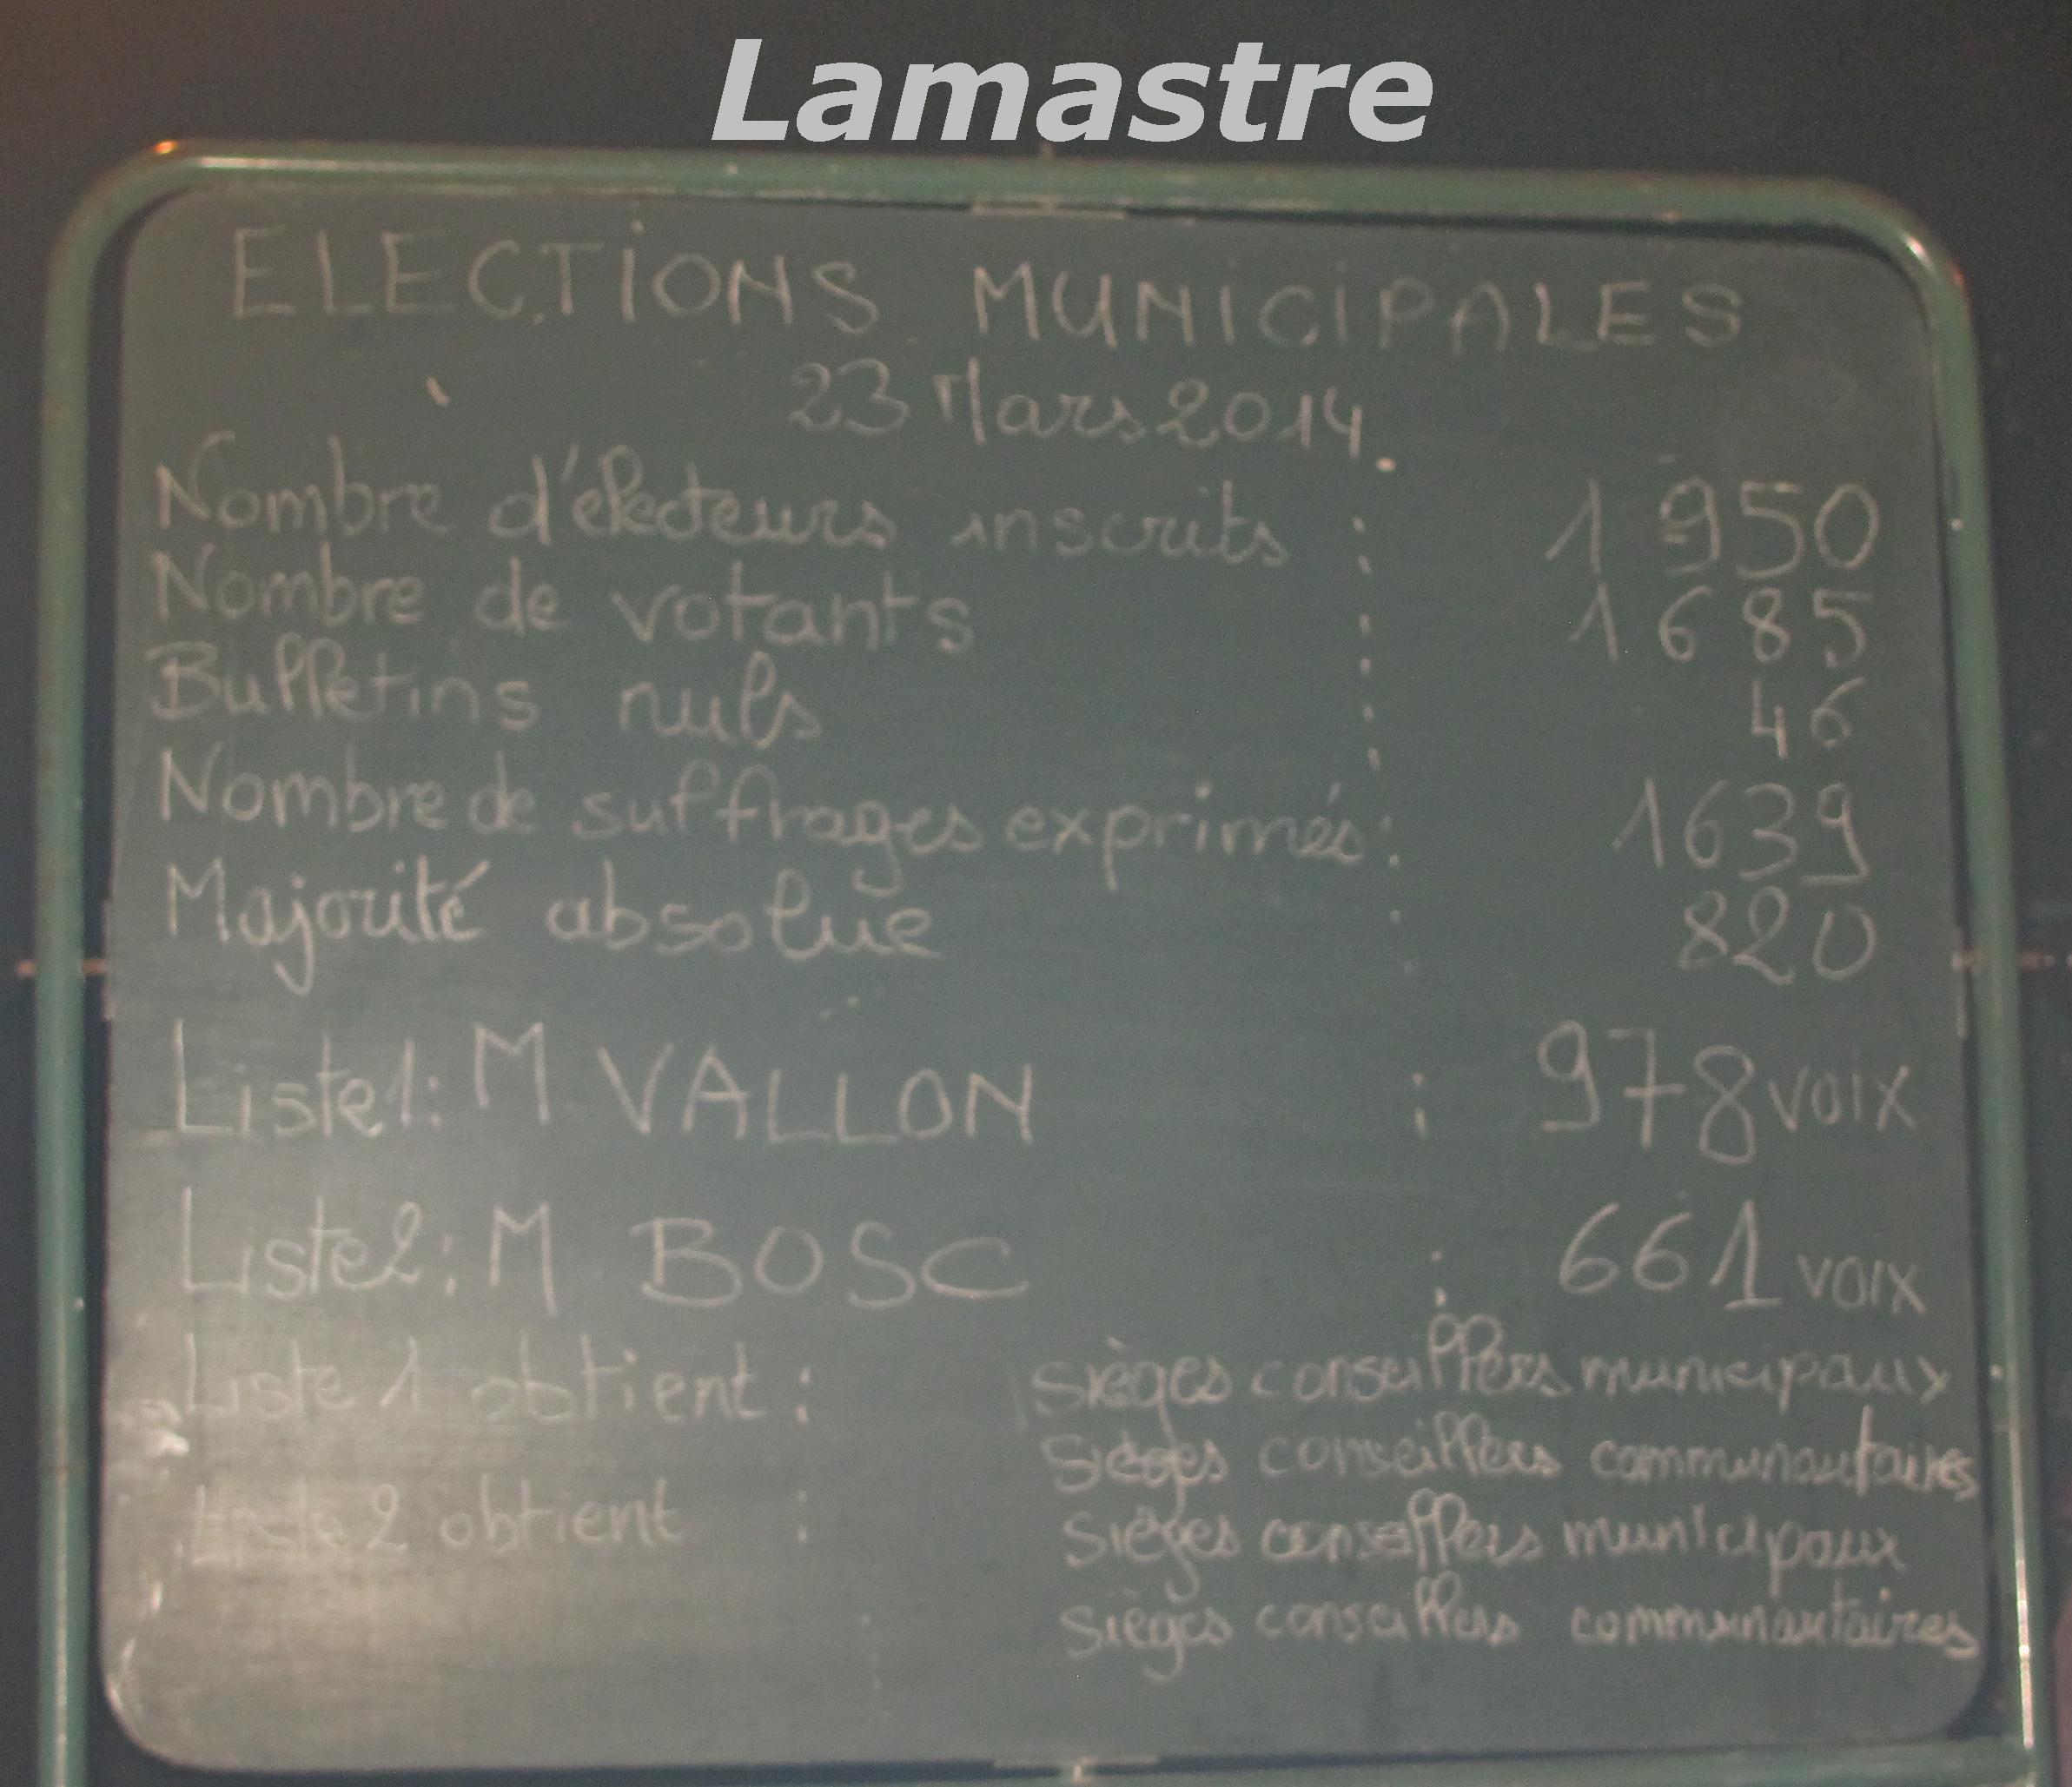 Lamastre
ELECTIONS MUNICIPALES
23 Mars 2014.
Nombre d'électeurs inscrits : 1 950
Nombre de votants : 1 685
Bulletins nuls : 46
Nombre de suffrages exprimés : 1639
Majorité absolue : 820
Liste 1 : M VALLON : 978 voix
Liste 2 : M BOSC : 661 voix
Liste 1 obtient : sièges conseillers municipaux
sièges conseillers communautaires
Liste 2 obtient : sièges conseillers municipaux
sièges conseillers communautaires